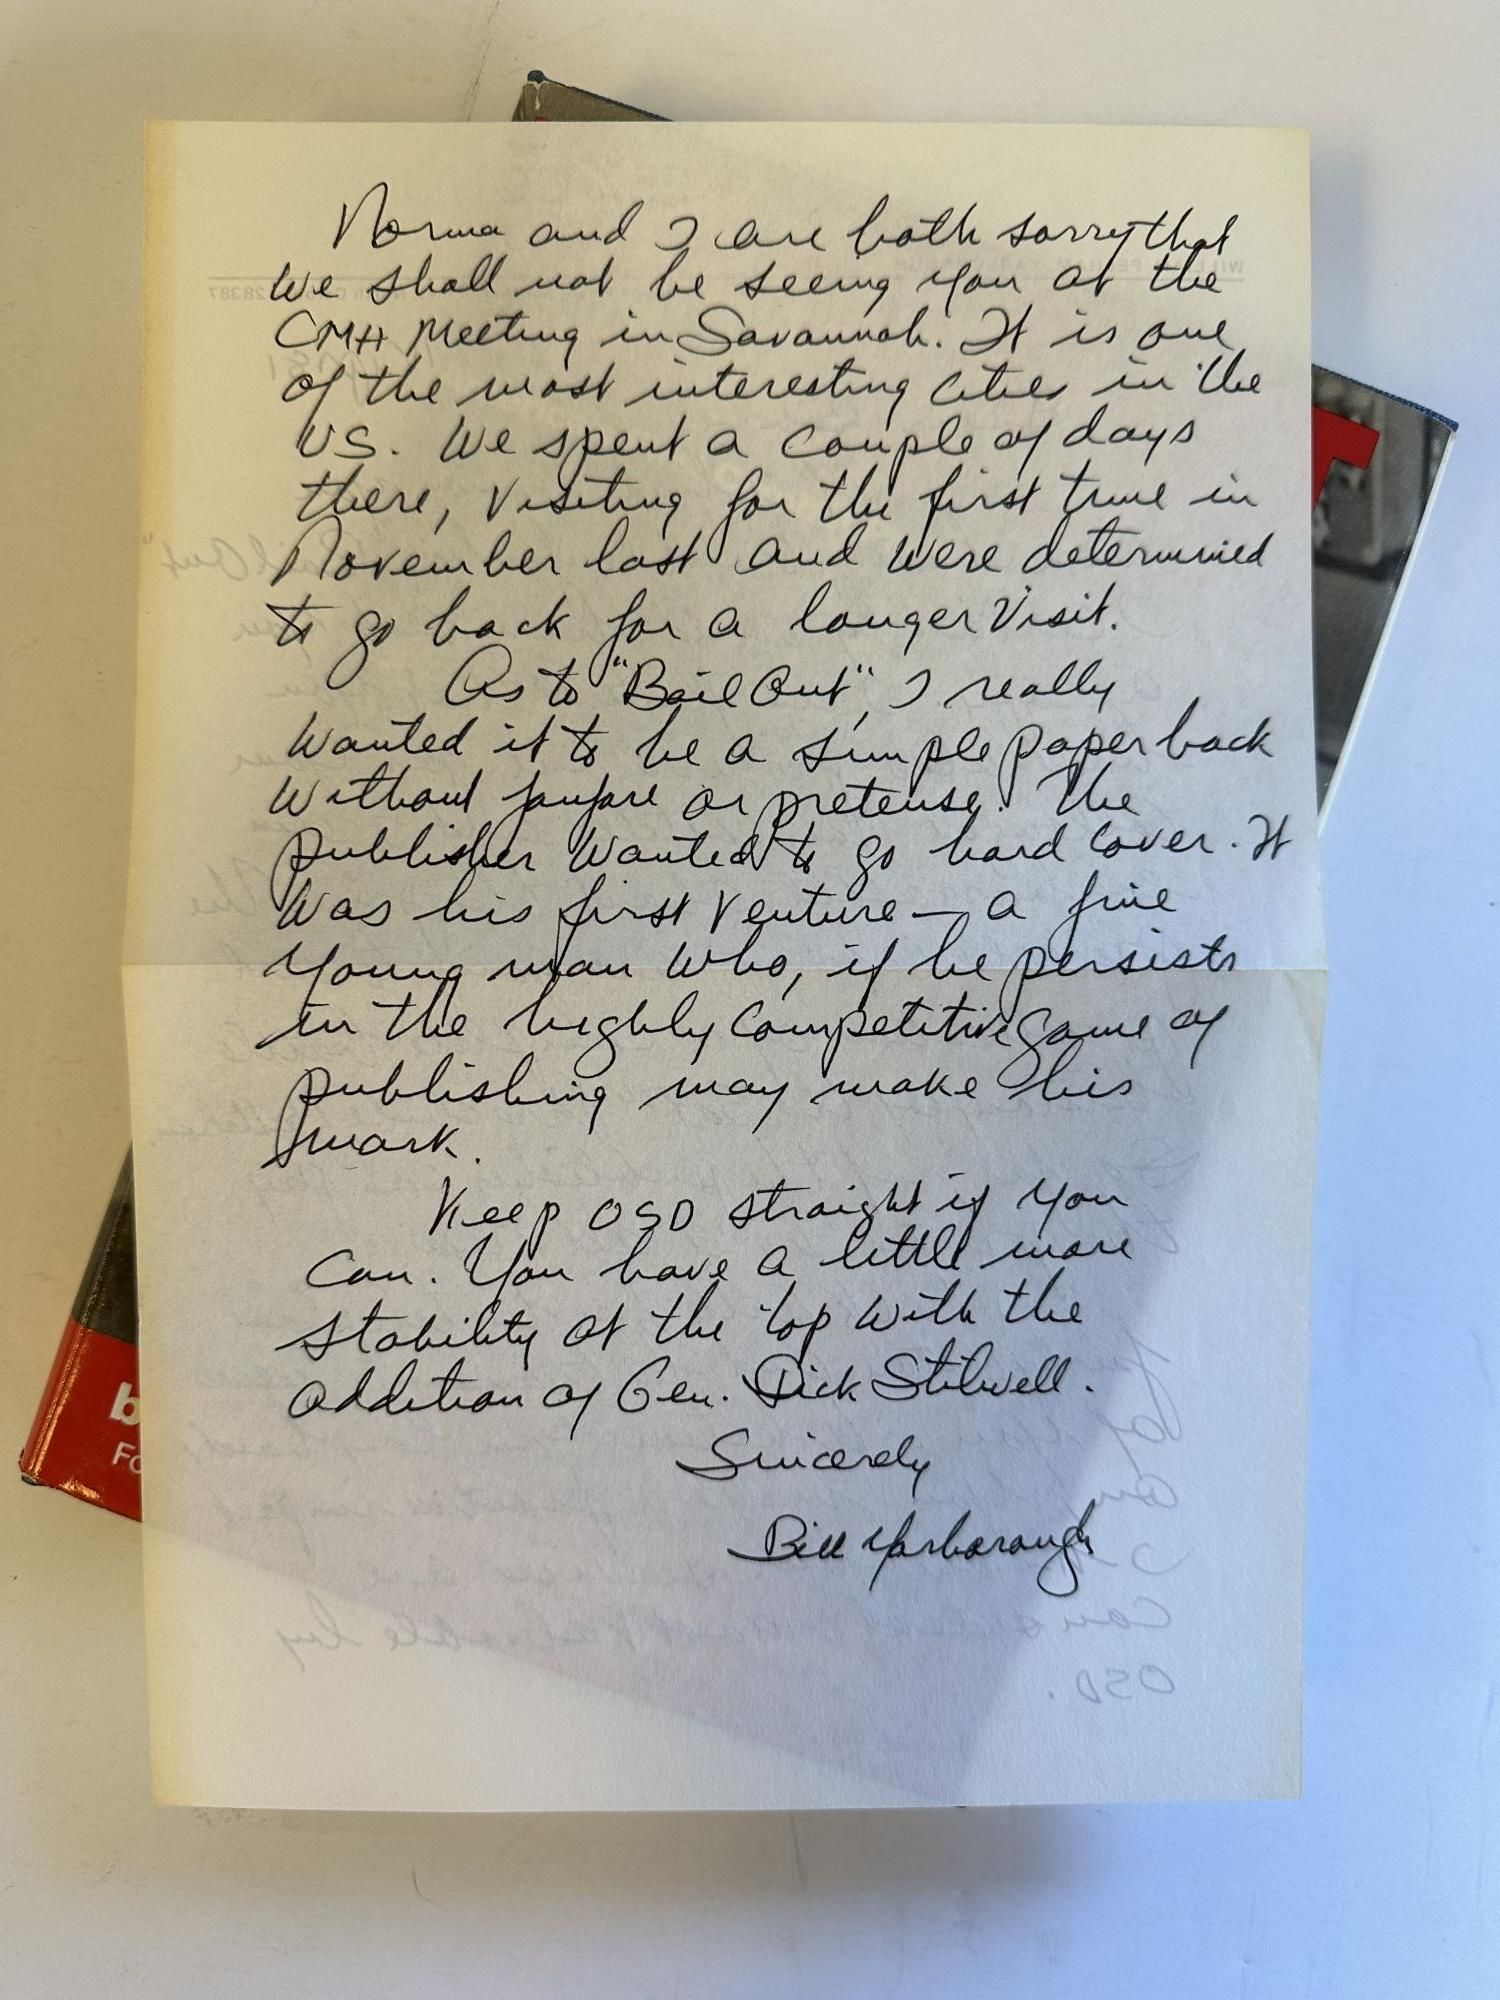 Norma and I are both sorry that
We shall not be seeing you at the
CMH Meeting in Savannah. It is one
of the most interesting cities in the
US. We spent a couple of days
there, visiting for the first time in
November last and were determined
to go back for a longer visit.
As to "Bail Out", I really
wanted it to be a simple paper back
without fanfare or pretense. The
publisher wanted to go hard cover. It
was his first venture — a fine
young man who, if he persists
in the highly competitive game of
publishing may make his
mark.
Keep OSD straight if you
can. You have a little more
stability at the top with the
addition of Gen. Dick Stilwell.
Sincerely
Bill Yarborough
b
Fo
T
28387
OSD.